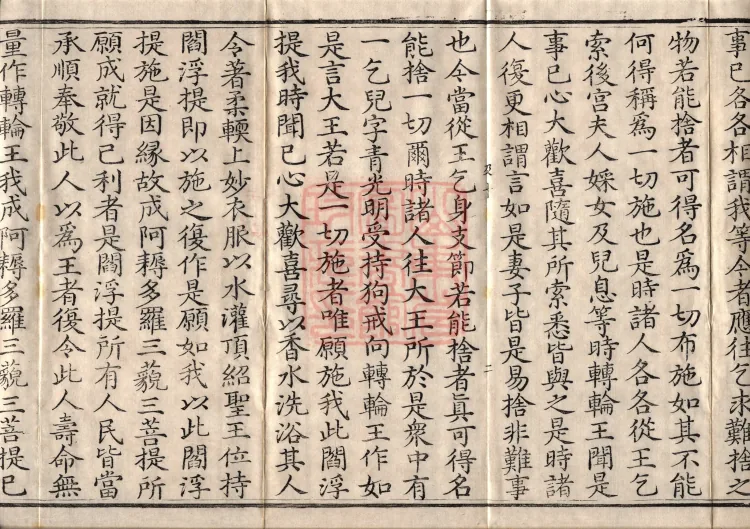 事已各各相謂我等今者應往乞求難捨之
物若能捨者可得名爲一切布施如其不能
何得稱爲一切施也是時諸人各各從王乞
索後宮夫人婇女及兒息等時轉輪王聞是
事已心大歡喜隨其所索悉皆與之是時諸
人復更相謂言如是妻子皆是易捨非難事
也今當從王乞身支節若能捨者眞可得名
能捨一切爾時諸人往大王所於是衆中有
一乞兒字青光明受持狗戒向轉輪王作如
是言大王若是一切施者唯願施我此閻浮
提我時聞已心大歡喜尋以香水洗浴其人
令著柔輭上妙衣服以水灌頂紹聖王位持
閻浮提即以施之復作是願如我以此閻浮
提施是因緣故成阿耨多羅三藐三菩提所
願成就得己利者是閻浮提所有人民皆當
承順奉敬此人以爲王者復令此人壽命無
量作轉輪王我成阿耨多羅三藐三菩提已